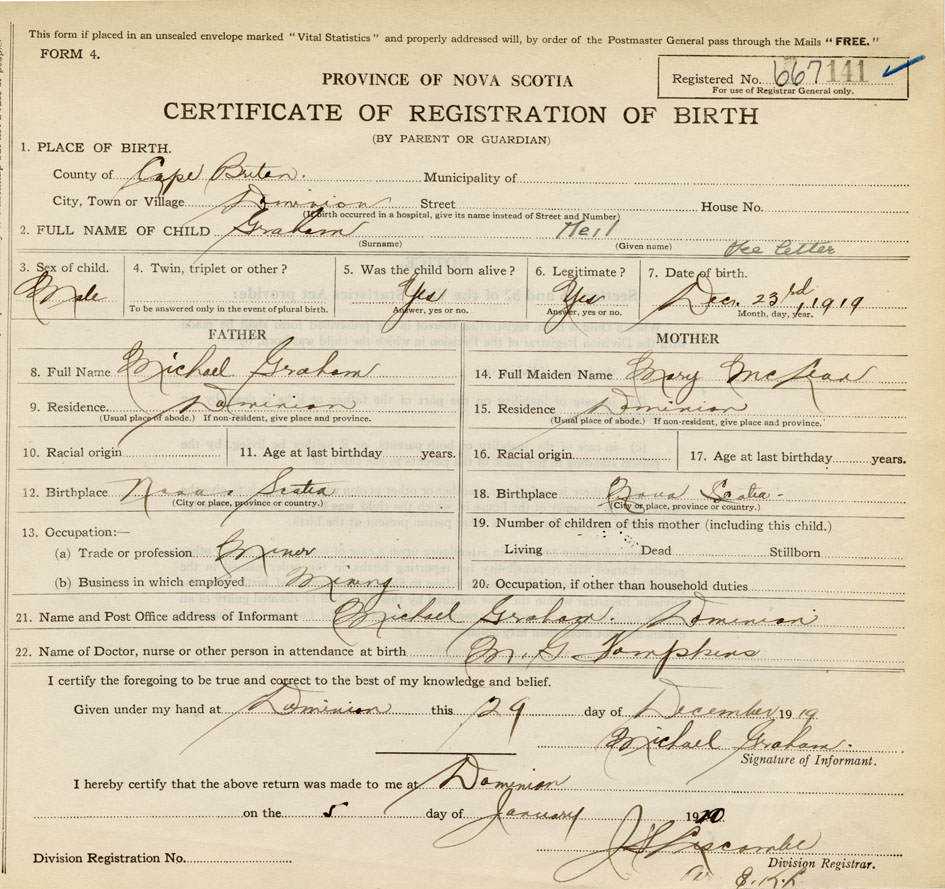 This form if placed in an unsealed envelope marked "Vital Statistics" and properly addressed will, by order of the Postmaster General pass through the Mails "FREE."
FORM 4.
Registered No. 667141
For use of Registrar General only.
PROVINCE OF NOVA SCOTIA
CERTIFICATE OF REGISTRATION OF BIRTH
(BY PARENT OR GUARDIAN)
1. PLACE OF BIRTH.
County of Cape Breton. Municipality of
City, Town or Village Dominion Street House No.
(If birth occurred in a hospital, give its name instead of Street and Number)
2. FULL NAME OF CHILD Graham Neil
(Surname) (Given name) See letter
3. Sex of child. 4. Twin, triplet or other? 5. Was the child born alive? 6. Legitimate? 7. Date of birth.
Male Yes Yes Dec. 23rd, 1919
To be answered only in the event of plural birth. Answer, yes or no. Answer, yes or no. Month, day, year.
FATHER MOTHER
8. Full Name Michael Graham 14. Full Maiden Name Mary
9. Residence Dominion 15. Residence Dominion
(Usual place of abode.) If non-resident, give place and province. (Usual place of abode.) If non-resident, give place and province.
10. Racial origin 11. Age at last birthday years. 16. Racial origin 17. Age at last birthday years.
12. Birthplace Nova Scotia 18. Birthplace Nova Scotia
(City or place, province or country.) (City or place, province or country.)
13. Occupation:— 19. Number of children of this mother (including this child.)
(a) Trade or profession. Miner Living Dead Stillborn
(b) Business in which employed Mining 20. Occupation, if other than household duties
21. Name and Post Office address of Informant Michael Graham. Dominion
22. Name of Doctor, nurse or other person in attendance at birth M. G. Tompkins
I certify the foregoing to be true and correct to the best of my knowledge and belief.
Given under my hand at Dominion this 29 day of December 1919
Michael Graham.
Signature of Informant.
I hereby certify that the above return was made to me at Dominion
on the 5 day of January 1920
Division Registration No. Division Registrar.